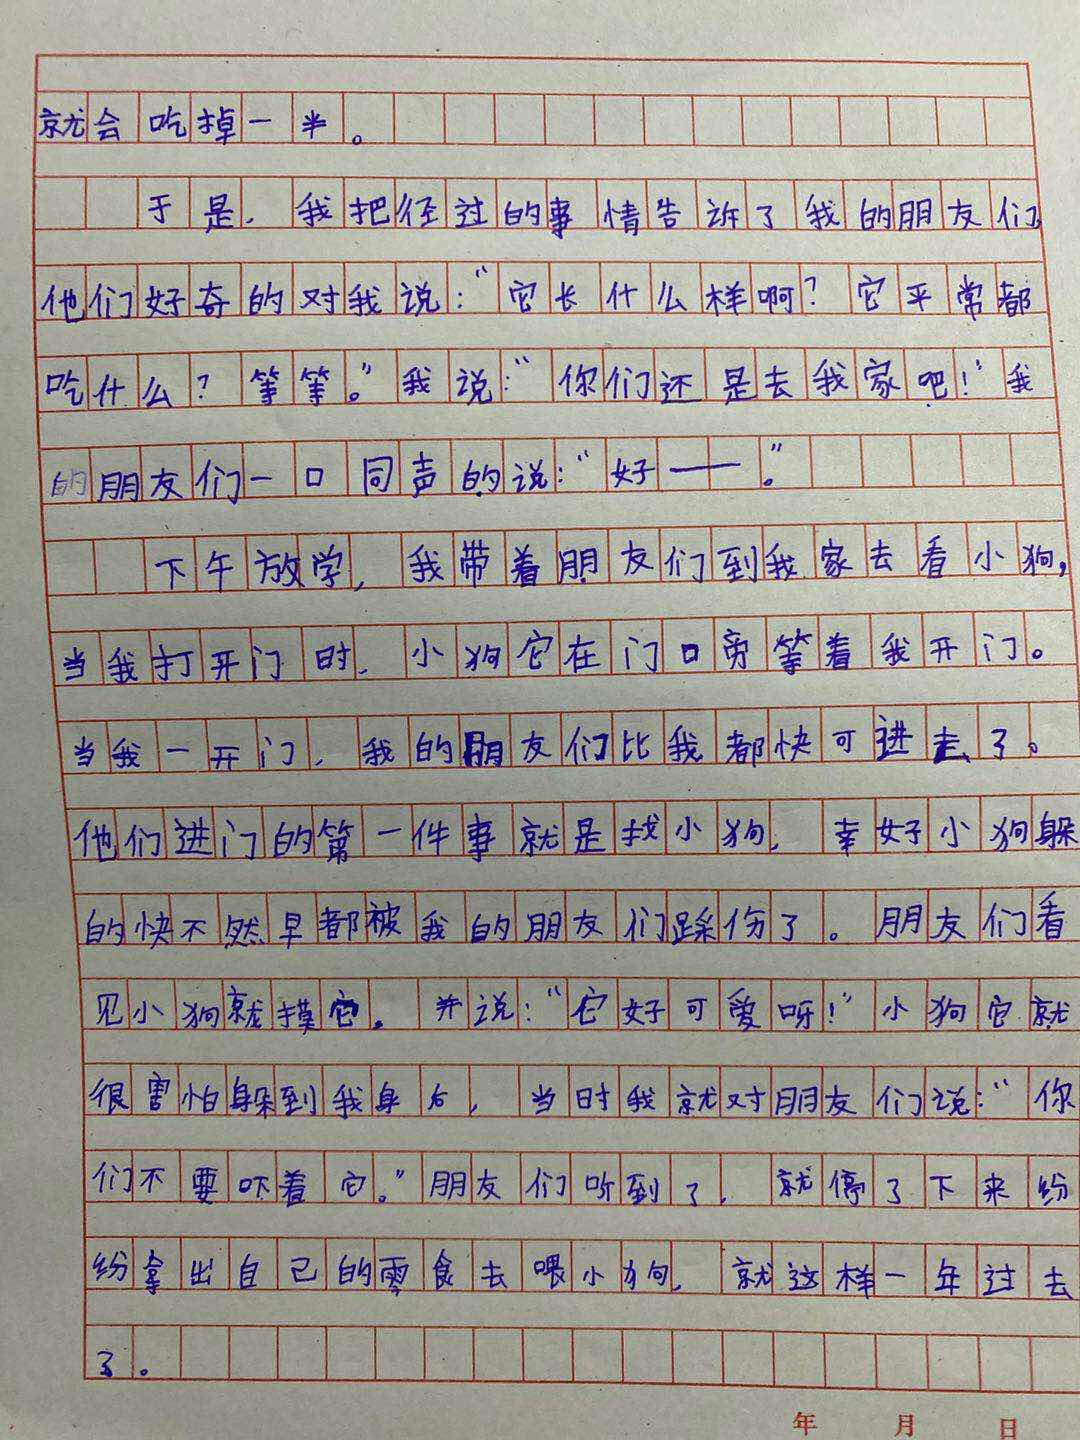 就会吃掉一半。
于是，我把径过的事情告诉了我的朋友们
他们好奇的对我说：“它长什么样啊？它平常都
吃什么？等等。”我说：“你们还是去我家吧！”我
的朋友们一口同声的说：“好——。”
下午放学，我带着朋友们到我家去看小狗，
当我打开门时，小狗它在门口旁等着我开门。
当我一开门，我的朋友们比我都快可进去了。
他们进门的第一件事就是找小狗，幸好小狗躲
的快不然早都被我的朋友们踩伤了。朋友们看
见小狗就摸它。并说：“它好可爱呀！”小狗它就
很害怕躲到我身后，当时我就对朋友们说：“你
们不要吓着它。”朋友们听到了，就停了下来纷
纷拿出自己的零食去喂小狗，就这样一年过去
了。
年 月 日